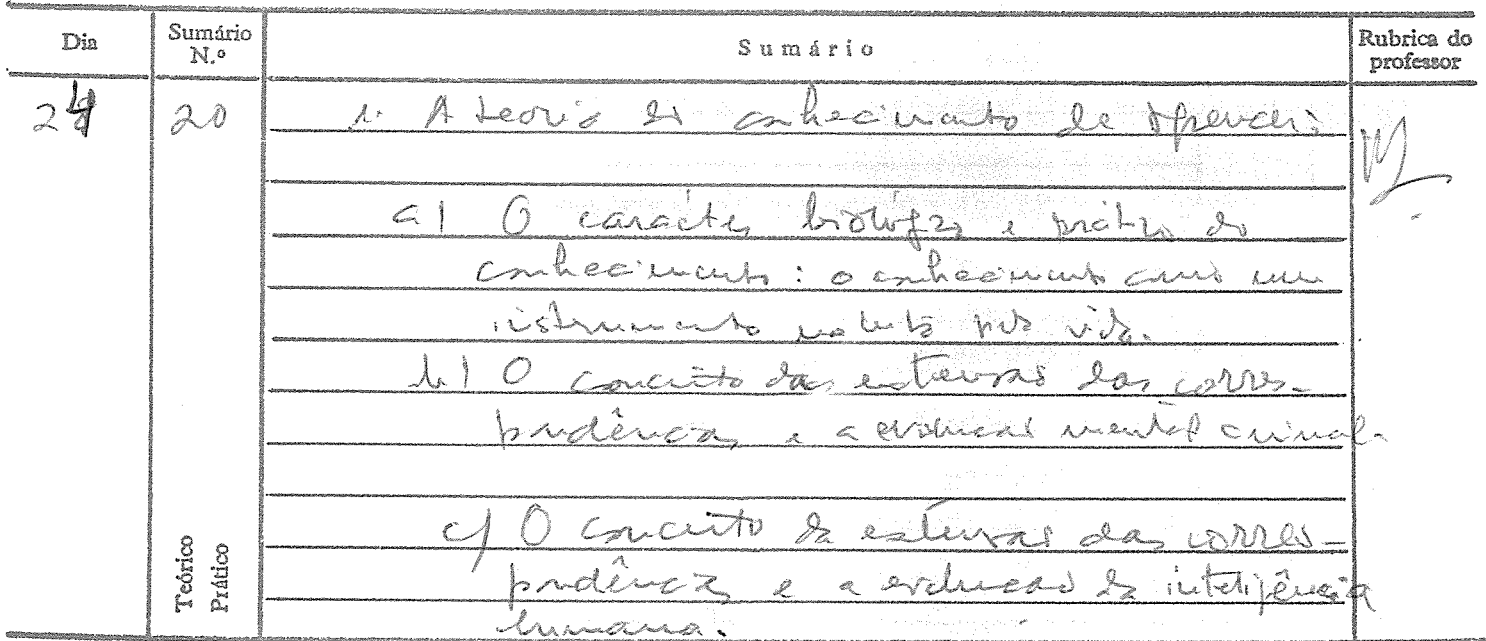 Dia
Sumário N.º
Sumário
Rubrica do professor
24 20 1. A teoria do conhecimento de Spencer:
a) O carácter biológico e prático do
conhecimento: o conhecimento como um
instrumento na luta pela vida.
b) O conceito da extensão das corres-
pondências e a evolução mental animal.
c) O conceito da extensão das corres-
pondências e a evolução da inteligência
humana.
Teórico
Prático